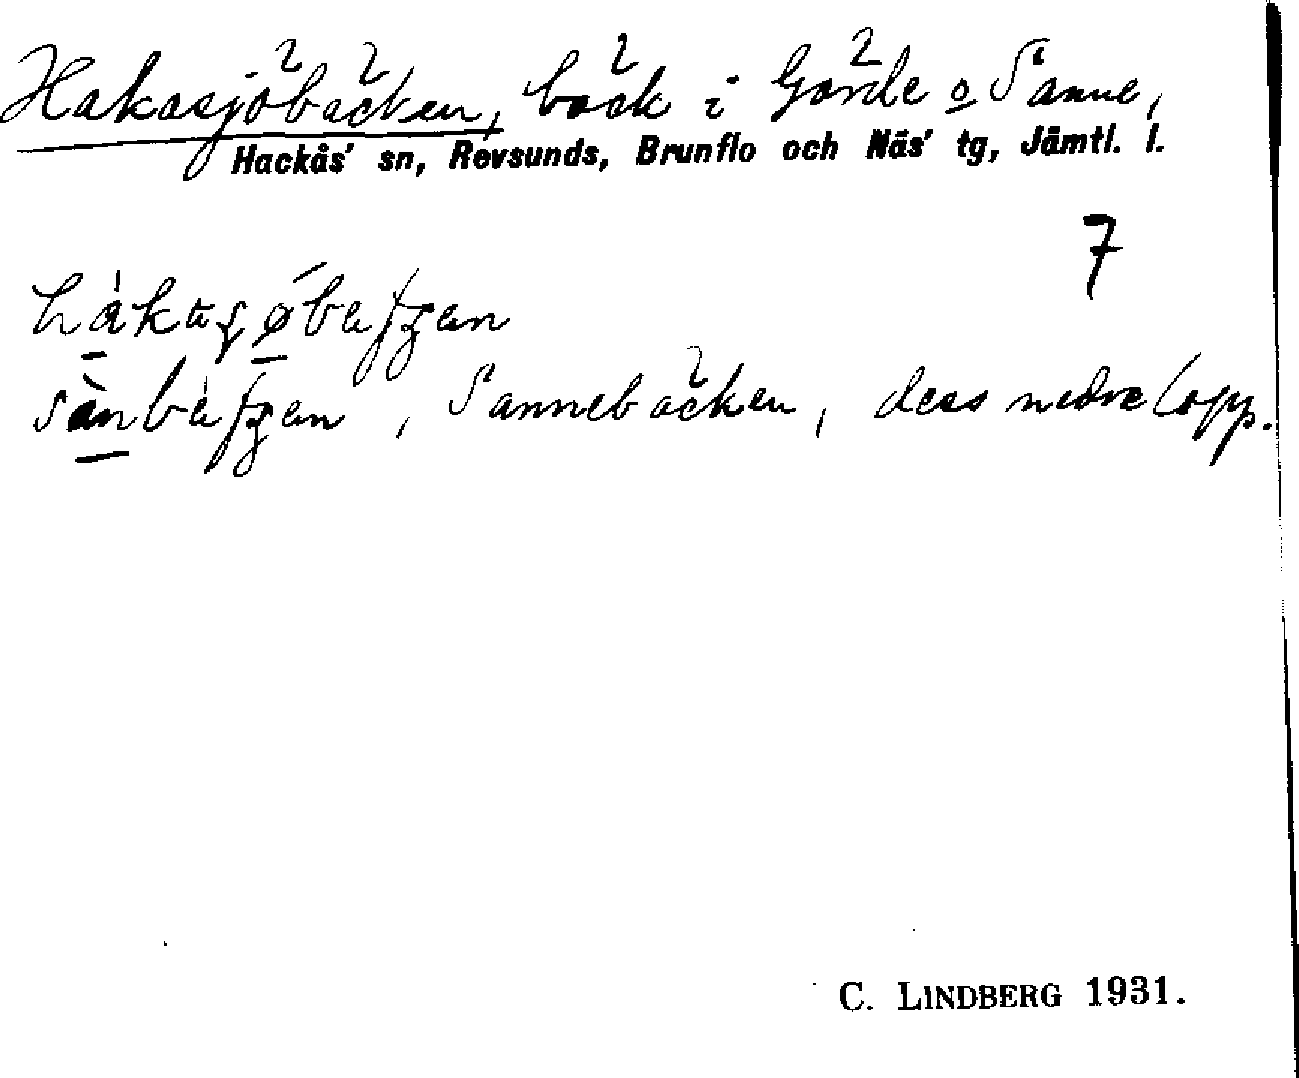 Hakasjöbäcken, bäck i Gärde o Sanne,
Hackås' sn, Revsunds, Brunflo och Näs' tg, Jämtl. l.
7
, Sannebäcken, dess nedre lopp.
C. LINDBERG 1931.